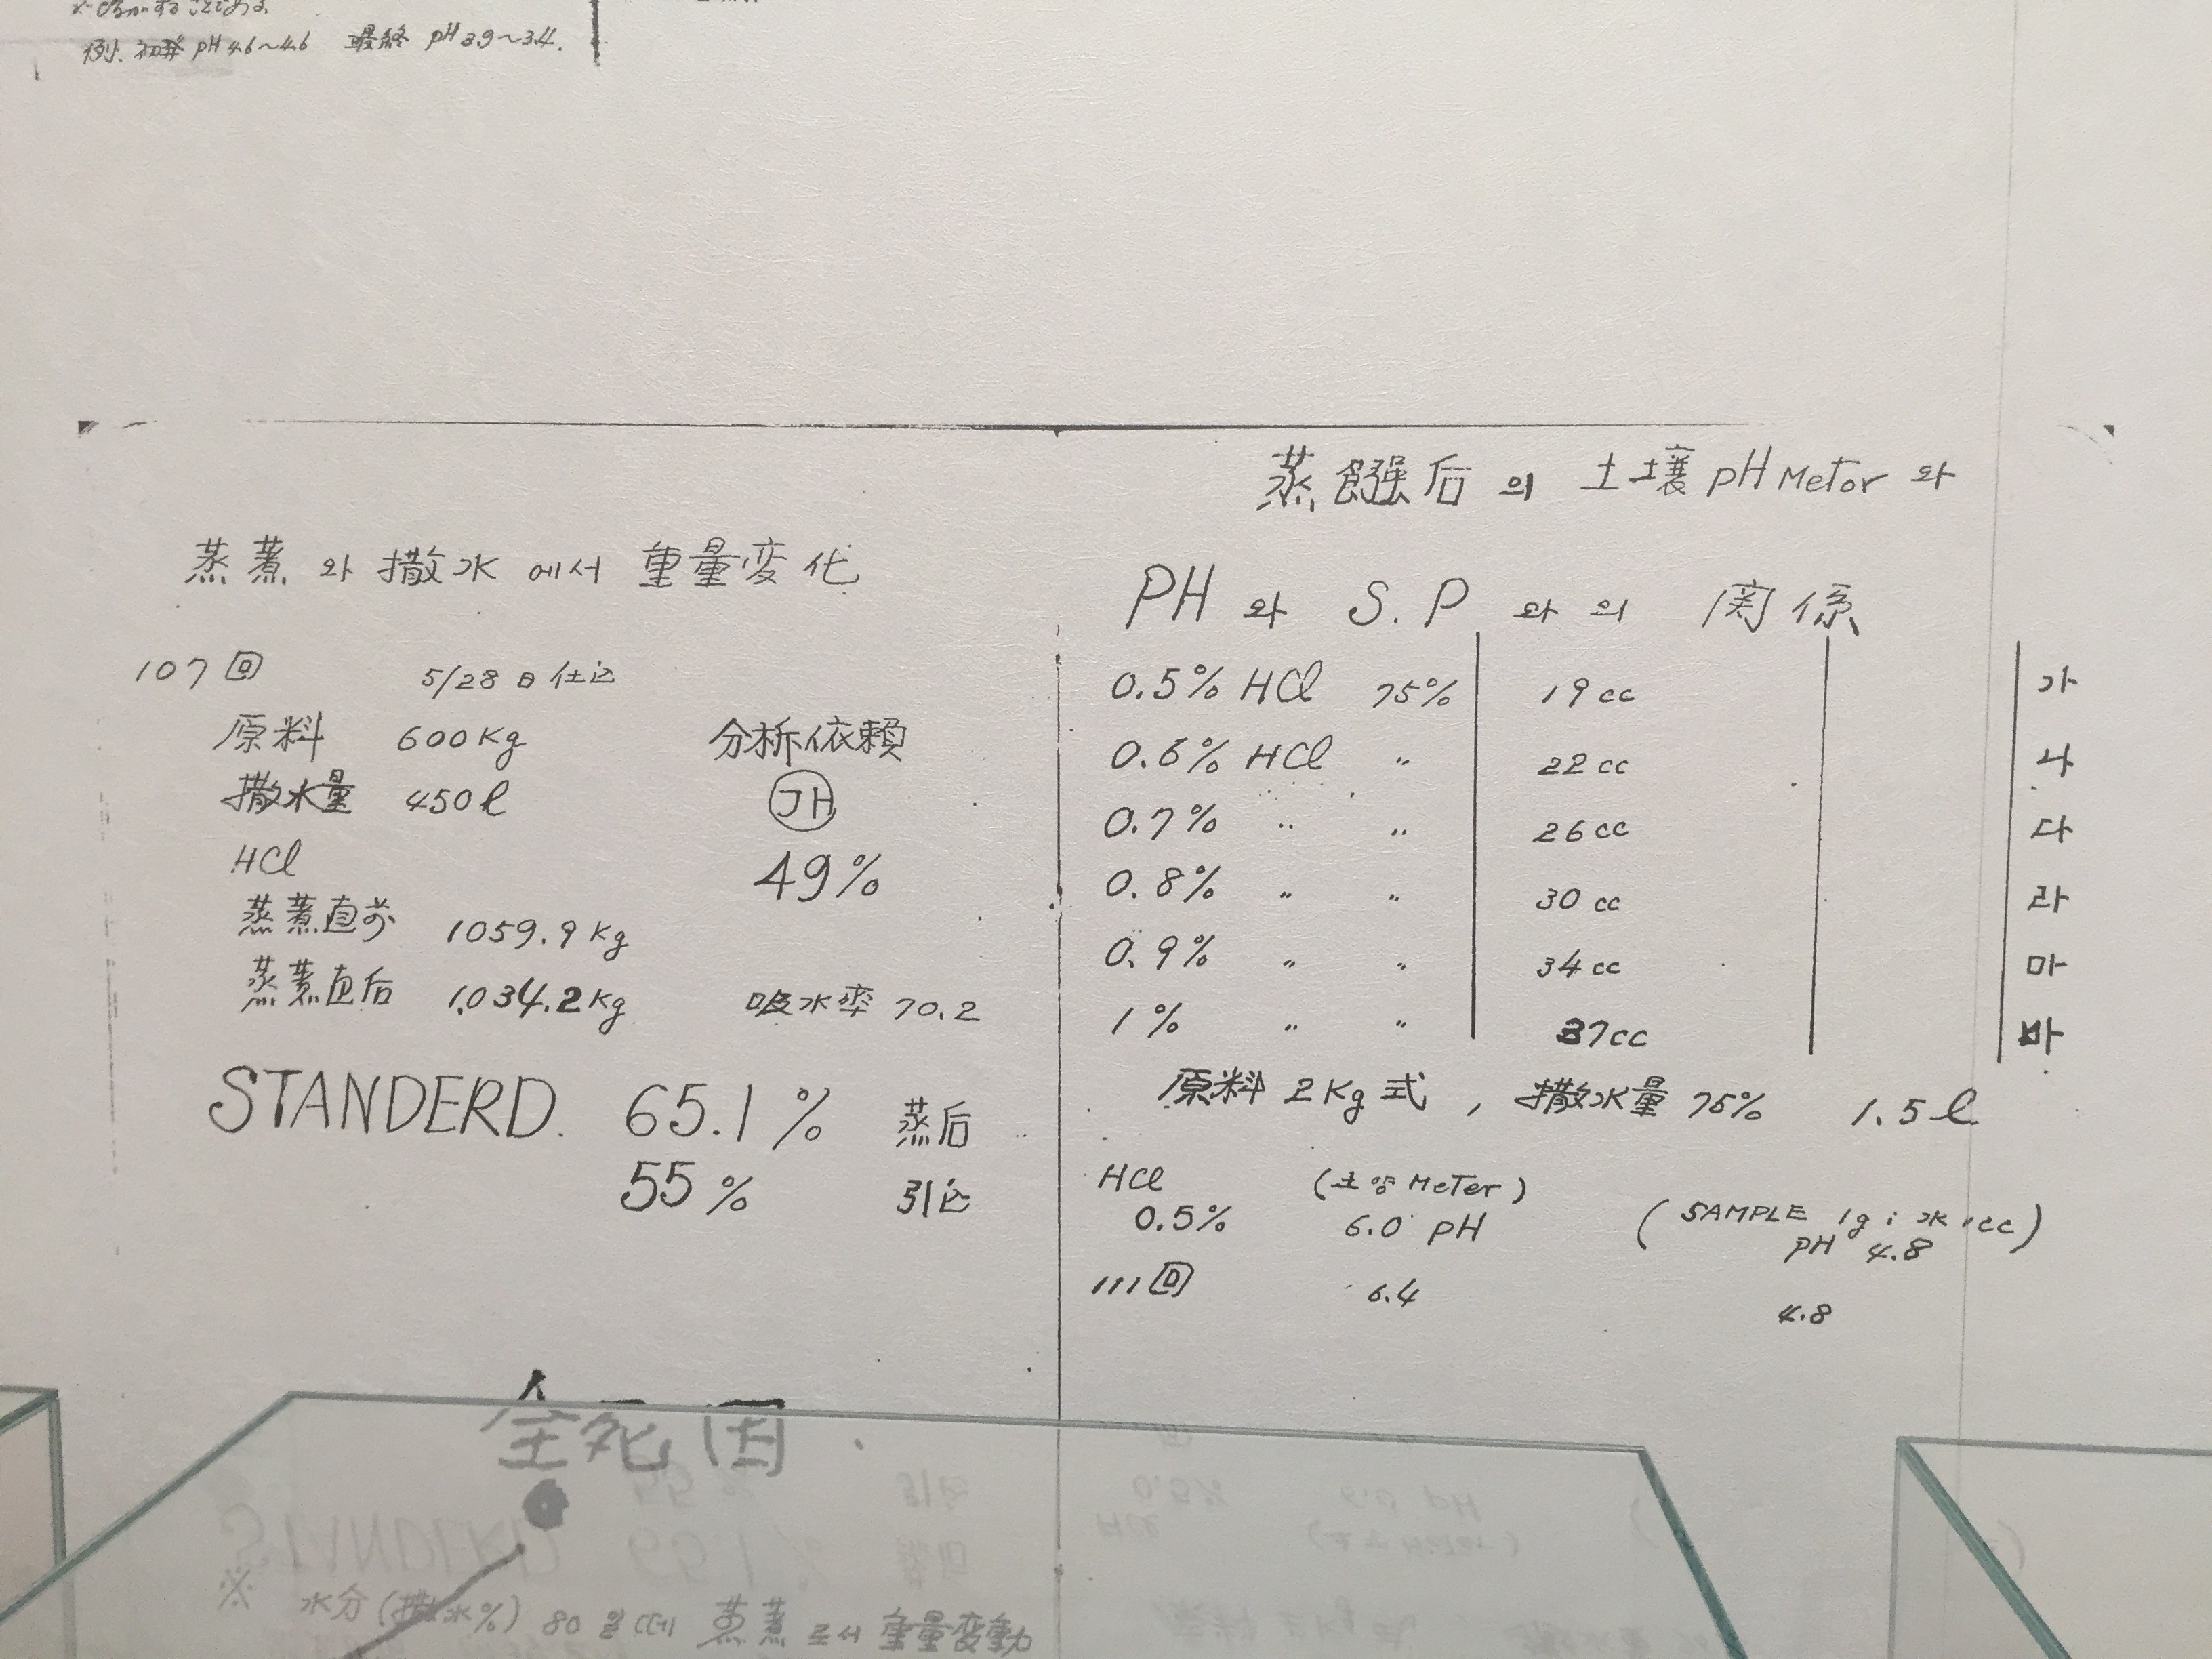 例. 初発 pH 4.6~4.6 最終 pH 3.9~3.4.
蒸煮 와 撒水 에서 重量変化
107回 5/28日 仕込
原料 600Kg 分析依頼
撒水量 450ℓ JH
HCl 49%
蒸煮直前 1059.9Kg
蒸煮直后 1.034.2Kg 吸水率 70.2
STANDERD. 65.1% 蒸后
55% 引込
全死因
※ 水分(撒水%) 80 일 때 蒸煮 로서 重量変動
蒸 后 의 土壤 pH Metor 와
PH 와 S.P 와 의 関係
0.5% HCl 75% 19cc 가
0.6% HCl 〃 22cc 나
0.7% 〃 〃 26cc 다
0.8% 〃 〃 30cc 라
0.9% 〃 〃 34cc 마
1% 〃 〃 37cc 바
原料 2Kg 式, 撒水量 75% 1.5ℓ
HCl (土양 MeTer) (SAMPLE 1g : 水 1cc)
0.5% 6.0 pH PH 4.8
111回 6.4 4.8